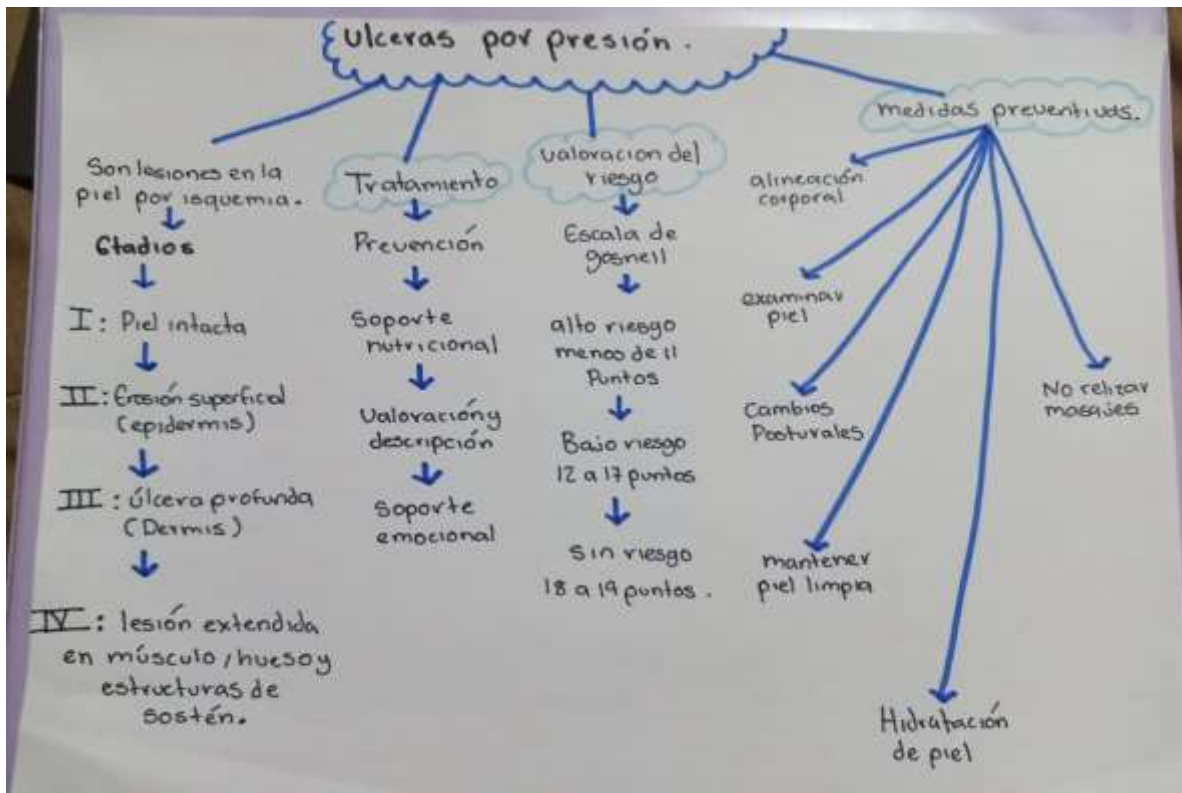 Ulceras por presión.
Son lesiones en la
piel por isquemia.
Etadios
I: Piel intacta
II: Erosión superfical
(epidermis)
III: úlcera profunda
(Dermis)
IV: lesión extendida
en músculo/hueso y
estructuras de
sostén.
Tratamiento
Prevención
Soporte
nutricional
Valoración y
descripción
Soporte
emocional
Valoracion del
riesgo
Escala de
gosnell
alto riesgo
menos de 11
Puntos
Bajo riesgo
12 a 17 puntos
Sin riesgo
18 a 19 puntos.
medidas preventivas.
alineación
corporal
examinar
piel
Cambios
Posturales
mantener
piel limpia
Hidratación
de piel
No relizar
masajes